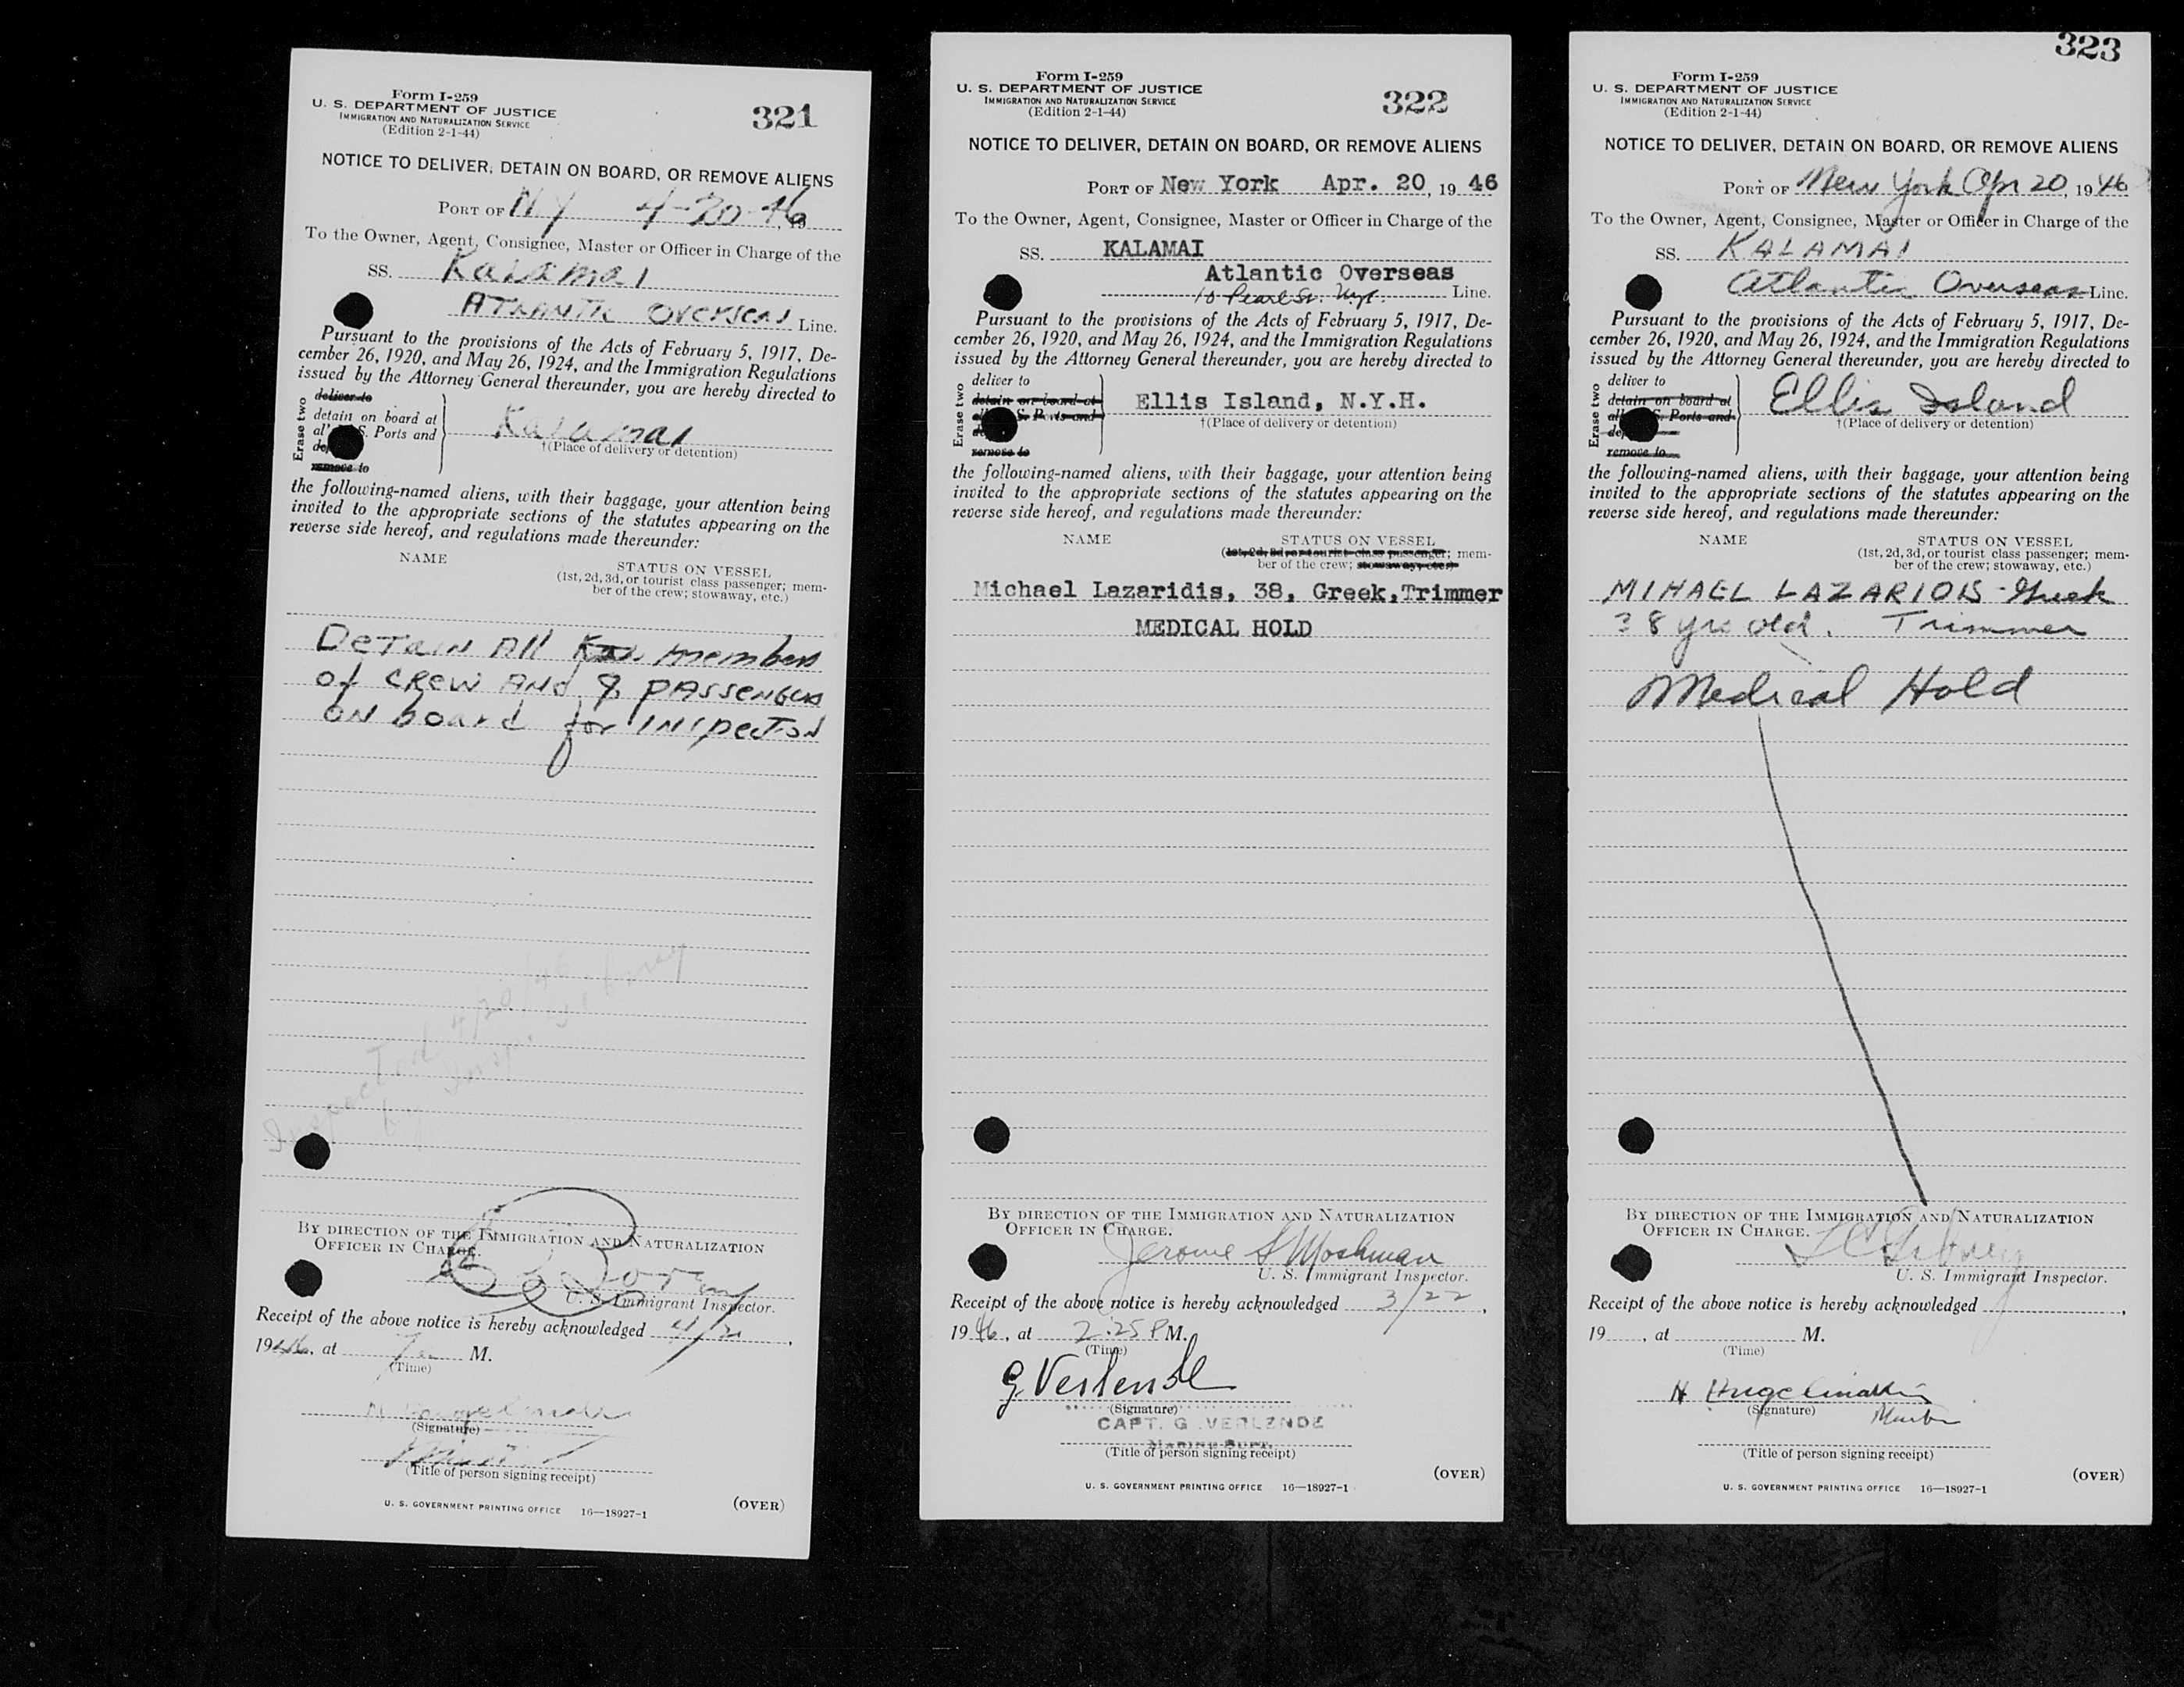 321
Form I-259
U. S. DEPARTMENT OF JUSTICE
IMMIGRATION AND NATURALIZATION SERVICE
(Edition 2-1-44)
NOTICE TO DELIVER, DETAIN ON BOARD, OR REMOVE ALIENS
PORT OF N.Y 4-20-46, 19
To the Owner, Agent, Consignee, Master or Officer in Charge of the
SS. Kalamai
ATLANTIC OVERSEAS Line.
Pursuant to the provisions of the Acts of February 5, 1917, De-
cember 26, 1920, and May 26, 1924, and the Immigration Regulations
issued by the Attorney General thereunder, you are hereby directed to
Erase two
deliver to
detain on board at
al' S. Ports and
de
remove to
Kalamai
†(Place of delivery or detention)
the following-named aliens, with their baggage, your attention being
invited to the appropriate sections of the statutes appearing on the
reverse side hereof, and regulations made thereunder:
NAME
STATUS ON VESSEL
(1st, 2d, 3d, or tourist class passenger; mem-
ber of the crew; stowaway, etc.)
DETAIN All members
of CREW AND 9 PASSENGERS
ON board for INSPECTION
Inspected 4/20/46
by Insp.
BY DIRECTION OF THE IMMIGRATION AND NATURALIZATION
OFFICER IN CHARGE.
U. S. Immigrant Inspector.
Receipt of the above notice is hereby acknowledged 4/2
1946, at 7 M.
(Time)
(Signature)
(Title of person signing receipt)
U. S. GOVERNMENT PRINTING OFFICE 16—18927-1
(OVER)
322
Form I-259
U. S. DEPARTMENT OF JUSTICE
IMMIGRATION AND NATURALIZATION SERVICE
(Edition 2-1-44)
NOTICE TO DELIVER, DETAIN ON BOARD, OR REMOVE ALIENS
PORT OF New York Apr. 20, 19 46
To the Owner, Agent, Consignee, Master or Officer in Charge of the
SS. KALAMAI
Atlantic Overseas
10 Pearl St. Nyc. Line.
Pursuant to the provisions of the Acts of February 5, 1917, De-
cember 26, 1920, and May 26, 1924, and the Immigration Regulations
issued by the Attorney General thereunder, you are hereby directed to
Erase two
deliver to
detain on board at
all S. Ports and
de
remove to
Ellis Island, N.Y.H.
†(Place of delivery or detention)
the following-named aliens, with their baggage, your attention being
invited to the appropriate sections of the statutes appearing on the
reverse side hereof, and regulations made thereunder:
NAME
STATUS ON VESSEL
(1st, 2d, 3d, or tourist class passenger; mem-
ber of the crew; stowaway, etc.)
Michael Lazaridis, 38, Greek, Trimmer
MEDICAL HOLD
BY DIRECTION OF THE IMMIGRATION AND NATURALIZATION
OFFICER IN CHARGE.
Jerome S Moshman
U. S. Immigrant Inspector.
Receipt of the above notice is hereby acknowledged 3/22,
1946, at 2.25 P M.
(Time)
G Verlende
(Signature)
CAPT. G. VERLENDE
MARINE SUPT.
(Title of person signing receipt)
(OVER)
U. S. GOVERNMENT PRINTING OFFICE 16—18927-1
323
Form I-259
U. S. DEPARTMENT OF JUSTICE
IMMIGRATION AND NATURALIZATION SERVICE
(Edition 2-1-44)
NOTICE TO DELIVER, DETAIN ON BOARD, OR REMOVE ALIENS
PORT OF New York Apr 20, 1946
To the Owner, Agent, Consignee, Master or Officer in Charge of the
SS. KALAMAI
Atlantic Overseas Line.
Pursuant to the provisions of the Acts of February 5, 1917, De-
cember 26, 1920, and May 26, 1924, and the Immigration Regulations
issued by the Attorney General thereunder, you are hereby directed to
Erase two
deliver to
detain on board at
all S. Ports and
de
remove to
Ellis Island
†(Place of delivery or detention)
the following-named aliens, with their baggage, your attention being
invited to the appropriate sections of the statutes appearing on the
reverse side hereof, and regulations made thereunder:
NAME
STATUS ON VESSEL
(1st, 2d, 3d, or tourist class passenger; mem-
ber of the crew; stowaway, etc.)
MIHAEL LAZARIDIS - Greek
38 yrs old. Trimmer
Medical Hold
BY DIRECTION OF THE IMMIGRATION AND NATURALIZATION
OFFICER IN CHARGE.
U. S. Immigrant Inspector.
Receipt of the above notice is hereby acknowledged ,
19 , at M.
(Time)
(Signature)
Master
(Title of person signing receipt)
(OVER)
U. S. GOVERNMENT PRINTING OFFICE 16—18927-1